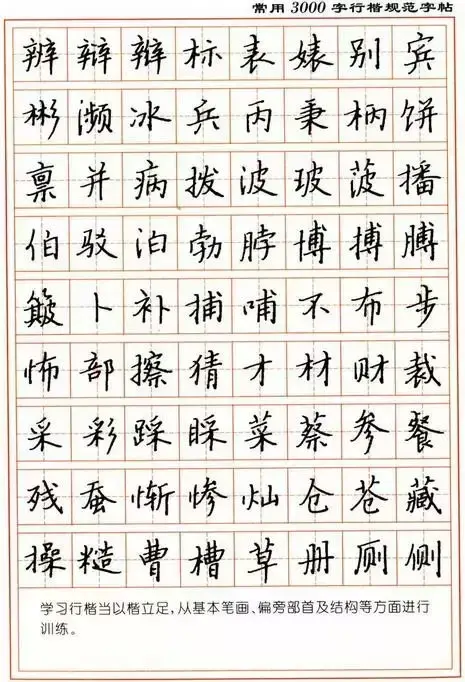 常用3000字行楷规范字帖
辨辩辫标表婊别宾
彬濒冰兵丙秉柄饼
禀并病拨波玻菠播
伯驳泊勃脖博搏膊
簸卜补捕哺不布步
怖部擦猜才材财裁
采彩踩睬菜蔡参餐
残蚕惭惨灿仓苍藏
操糙曹槽草册厕侧
学习行楷当以楷立足,从基本笔画、偏旁部首及结构等方面进行
训练。